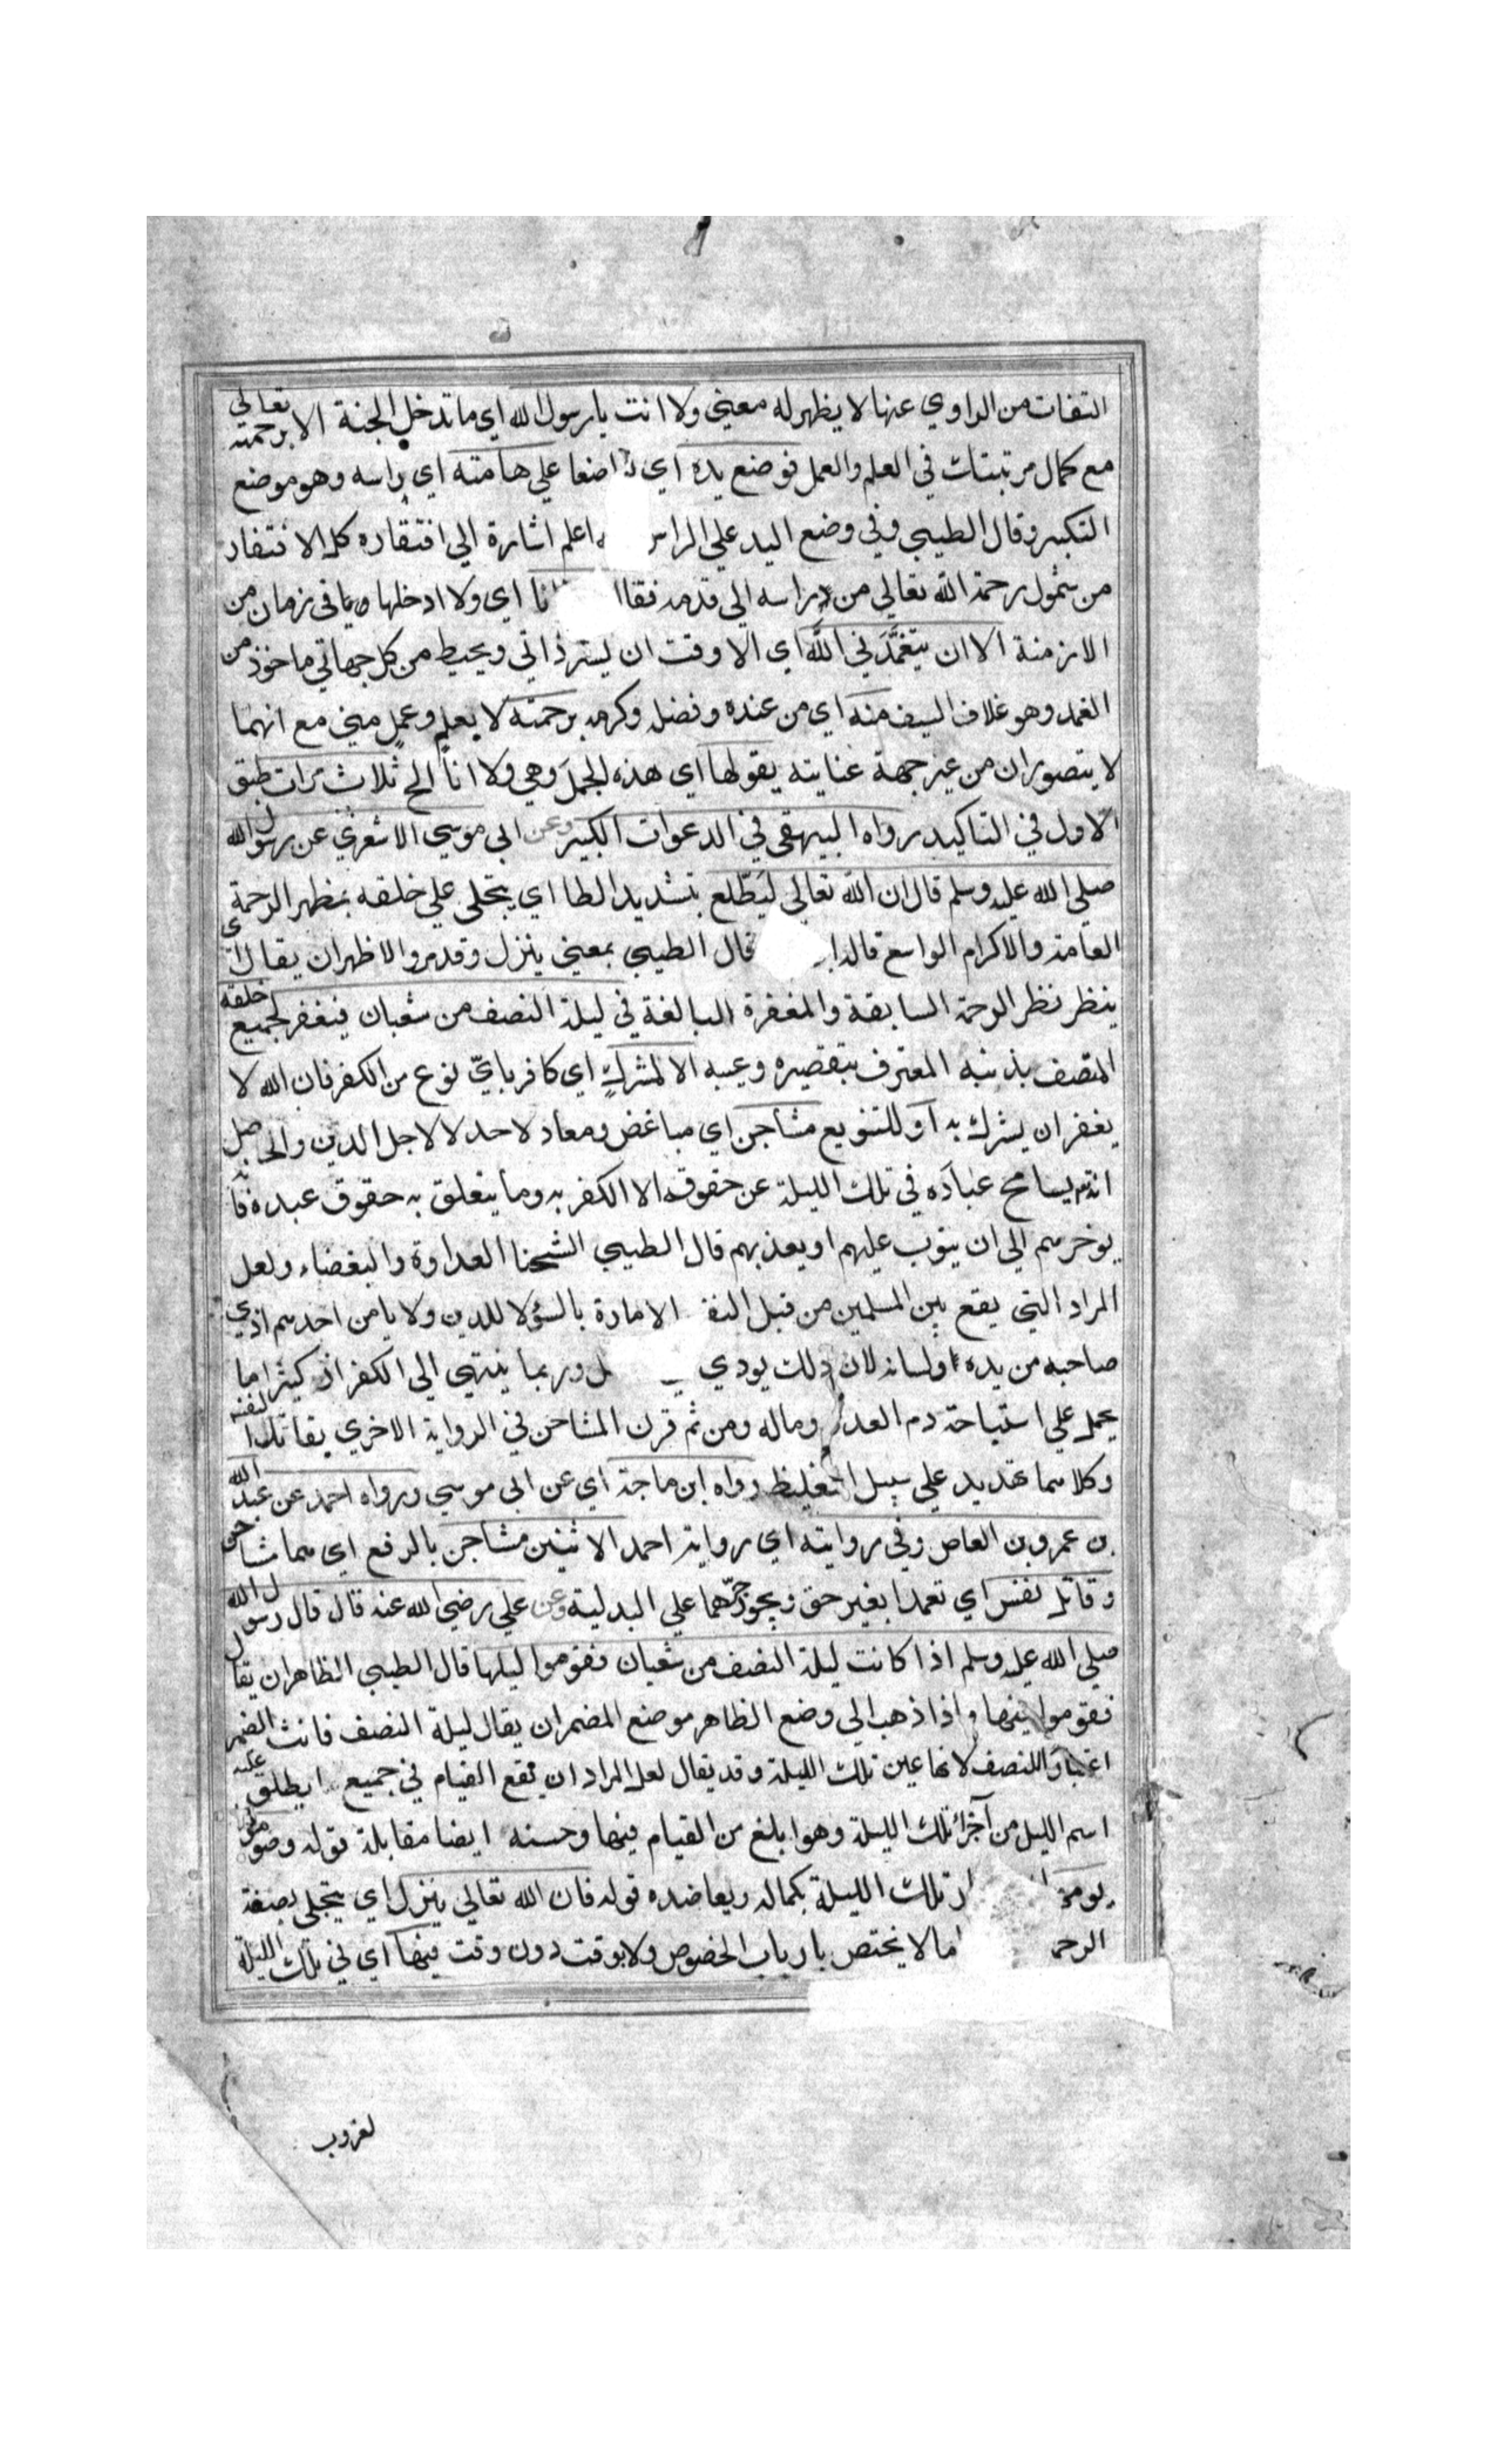 التفات من الراوي عنها لا يظهر له معني ولا انت يا رسول الله اي ما تدخل الجنة الا برحمته تعالي
مع كمال مرتبتك في العلم والعمل فوضع يده اي اضعا علي هامته اي راسه وهو موضع
التكبر وقال الطيبي وفي وضع اليد علي الراس اعلم اشارة الي افتقاره كل الافتقار
من شمول رحمة الله تعالي من راسه الي قدمه فقا نا اي ولا ادخلها في زمان من
الازمنة الا ان يتغمدني الله اي الا وقت ان يستر ذاتي ويحيط من كل جهاتي ماخوذ من
الغمد وهو غلاف السيف منه اي من عنده وفضله وكرمه برحمته لا بعلم وعمل مني مع انهما
لا يتصوران من غير جهة عنايته يقولها اي هذه الجمل وهي ولا انا الخ ثلاث مرات طبق
الاول في التاكيد رواه البيهقي في الدعوات الكبير وعن ابي موسي الاشعري عن رسول الله
صلي الله عليه وسلم قال ان الله تعالي ليطلع بتشديد الطا اي يتجلي علي خلقه بمظهر الرحمة
العامة والاكرام الواسع قاله ا قال الطيبي بمعني ينزل وقد مر والاظهر ان يقال اي
ينظر نظر الرحمة السابقة والمغفرة البالغة في ليلة النصف من شعبان فيغفر لجميع خلقه
المتصف بذنبه المعترف بتقصيره وعيبه الا لمشرك اي كافر باي نوع من الكفر فان الله لا
يغفر ان يشرك به او للتنويع مشاحن اي مباغض ومعاد لاحد لا لاجل الدين والحاصل
انه يسامح عباده في تلك الليلة عن حقوقه الا الكفر به وما يتعلق به حقوق عبده فانه
يوخرهم الي ان يتوب عليهم او يعذبهم قال الطيبي الشحنا العداوة والبغضاء ولعل
المراد التي يقع بين المسلمين من قبل النفـ الامارة بالسؤ لا للدين ولا يامن احدهم اذي
صاحبه من يده او لسانه لان ذلك يودي ل وربما ينتهي الي الكفر اذ كثيرا ما
يحمل علي استباحة دم العدو وماله ومن ثم قرن المشاحن في الرواية الاخري بقاتل النفس
وكلاهما تهديد علي سبيل التغليظ رواه ابن ماجة اي عن ابي موسي ورواه احمد عن عبد الله
بن عمرو بن العاص وفي روايته اي رواية احمد الا اثنين مشاحن بالرفع اي هما مشاحن
وقاتل نفس اي تعمدا بغير حق ويجوز جرهما علي البدلية وعن علي رضي الله عنه قال قال رسول الله
صلي الله عليه وسلم اذا كانت ليلة النصف من شعبان فقوموا ليلها قال الطيبي الظاهر ان يقال
فقوموا فيها واذا ذهب الي وضع الظاهر موضع المضمر ان يقال ليلة النصف فانث الضمير
اعتبارا للنصف لانها عين تلك الليلة وقد يقال لعل المراد ان يقع القيام في جميع ما يطلق عليه
اسم الليل من اجزا تلك الليلة وهو ابلغ من القيام فيها وحسنه ايضا مقابلة قوله وصوموا
يومها تلك الليلة بكماله ويعاضده قوله فان الله تعالي ينزل اي يتجلي بصفة
الرحمـ ما لا يختص بارباب الخصوص ولا بوقت دون وقت فيها اي في تلك الليلة
لغروب